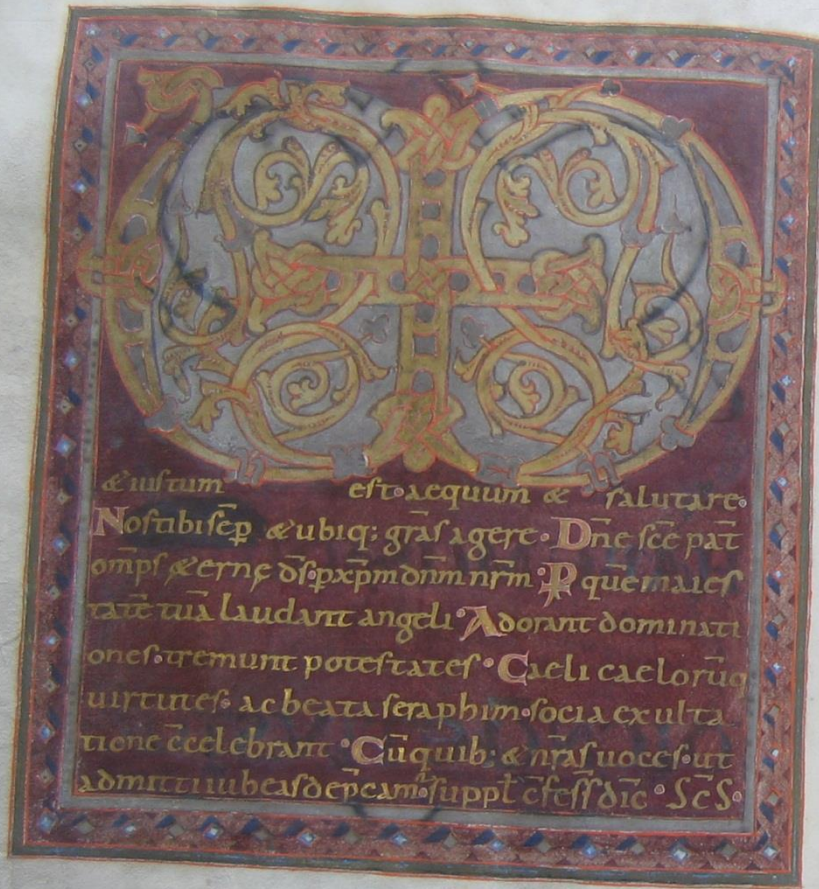 & iustum est aequum & salutare.
Nos tibi sēp̄ & ubiq; grās agere. Dn̄e sc̄e pat̄
om̄ps &erne d̄s. p xp̄m dn̄m nr̄m. P quē maies
tatē tuā laudant angeli. Adorant dominati
ones. tremunt potestates. Caeli caelorūq
uirtutes. ac beata seraphim. socia exulta
tione c̄celebrant. Cū quib; & nr̄as uoces. ut
admitti iubeas dep̄cam̄. suppl̄ c̄fess̄ dic̄. SC̄S.